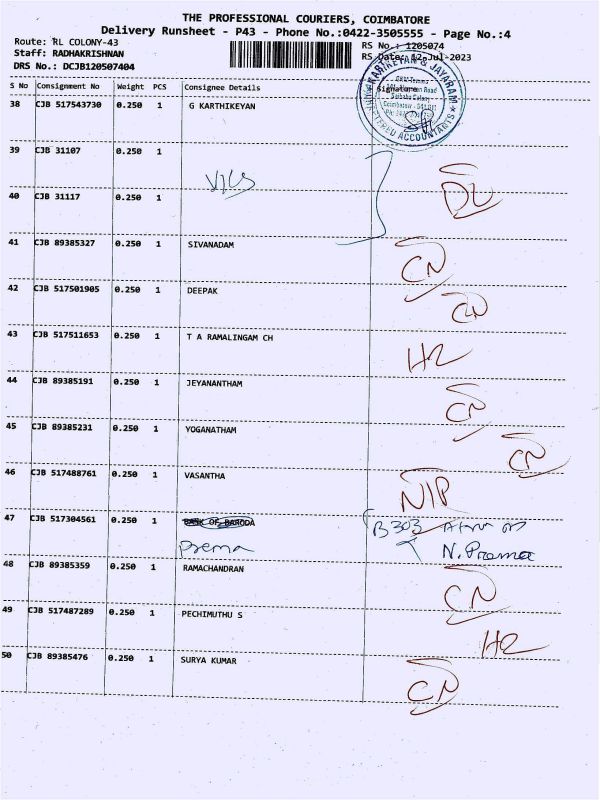 THE PROFESSIONAL COURIERS, COIMBATORE
Delivery Runsheet - P43 - Phone No.:0422-3505555 - Page No.:4
Route: RL COLONY-43
RS No.: 1205074
Staff: RADHAKRISHNAN
RS Date: 12-Jul-2023
DRS No.: DCJB120507404
S No Consignment No Weight PCS Consignee Details Signature
KARTHIKEYAN & JAYARAM
CHARTERED ACCOUNTANTS
38 CJB 517543730 0.250 1 G KARTHIKEYAN
39 CJB 31107 0.250 1
40 CJB 31117 0.250 1
DL
41 CJB 89385327 0.250 1 SIVANADAM CN
42 CJB 517501905 0.250 1 DEEPAK CN
43 CJB 517511653 0.250 1 T A RAMALINGAM CH H2
44 CJB 89385191 0.250 1 JEYANANTHAM CN
45 CJB 89385231 0.250 1 YOGANATHAM CN
46 CJB 517488761 0.250 1 VASANTHA NIP
47 CJB 517304561 0.250 1 BANK OF BARODA B303
Prema N. Prema
48 CJB 89385359 0.250 1 RAMACHANDRAN CN
49 CJB 517487289 0.250 1 PECHIMUTHU S H2
50 CJB 89385476 0.250 1 SURYA KUMAR CN